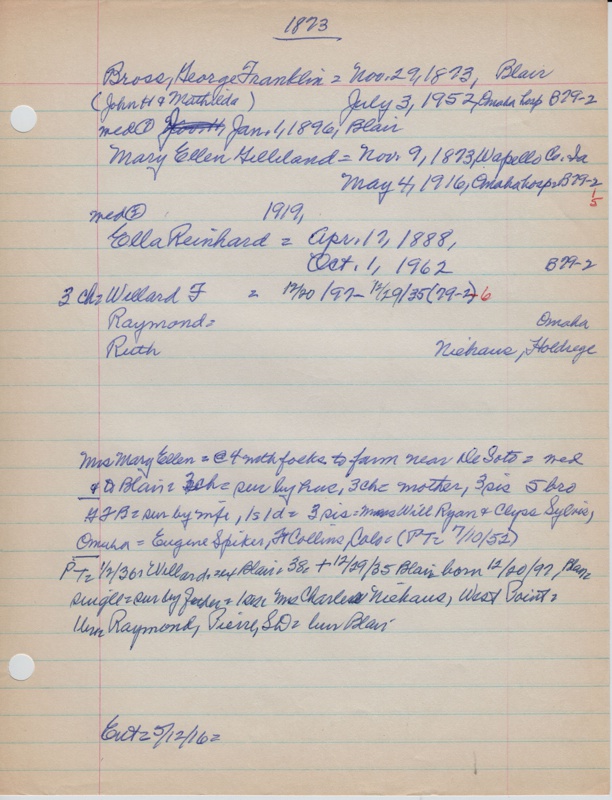 1873
Bross, George Franklin = Nov. 29, 1873, Blair
(John H & Mathilda) July 3, 1952, Omaha hosp B79-2
med ① Jan. 1, 1896, Blair
Mary Ellen Gilliland = Nov. 9, 1873, Wapello Co. Ia
May 4, 1916, Omaha hosp = B79-2
1/5
med ② 1919,
Ella Reinhard = Apr. 17, 1888,
Oct. 1, 1962 B79-2
3 ch = Willard F = 12/20/97 - 12/29/35 (79-2) - 6
Raymond = Omaha
Ruth Niehaus, Holdrege
Mrs Mary Ellen = @ 4 with folks to farm near De Soto = med
& D Blair = 3ch = sur by hus, 3ch = mother, 3 sis 5 bro
GFB = sur by wife, 1s 1d = 3 sis = Will Ryan & Clyss Sylvis,
Omaha = Eugene Spiker, Ft Collins, Colo = (PT = 7/10/52)
PT = 1/2/36: Willard = Blair = 38 + 12/29/35 Blair born 12/20/97,
single = sur by father = 1 sis Mrs Charles Niehaus, West Point =
Raymond, Pierre, SD = bur Blair
Ent = 5/12/16 =